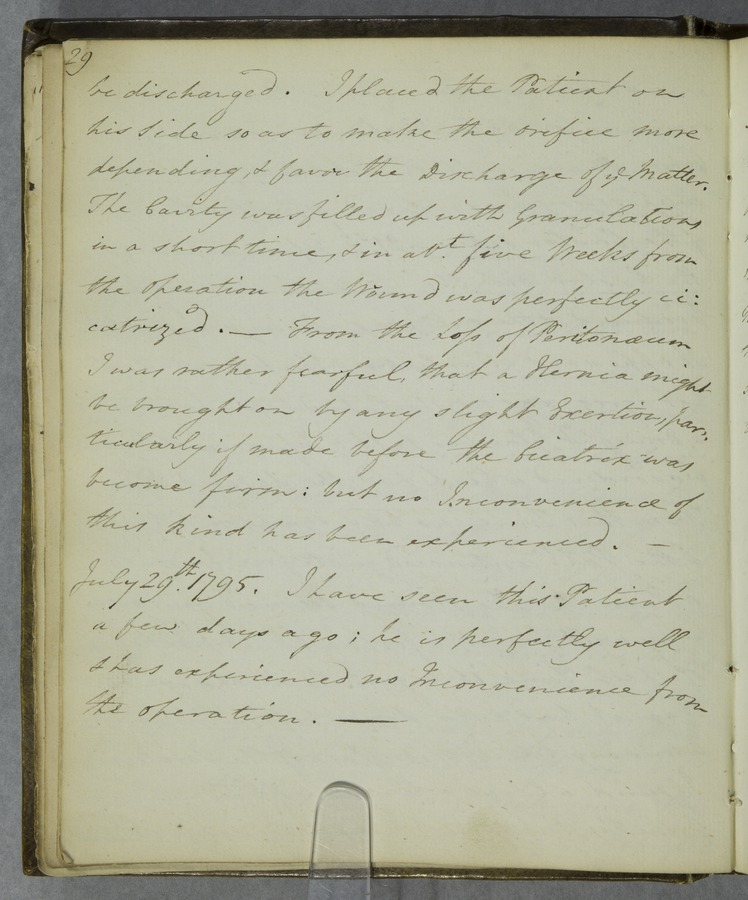 29
be discharged. I placed the Patient on
his Side so as to make the orifice more
depending, & favor the Discharge of ye Matter.
The Cavity was filled up with Granulations
in a short time, & in abt. five Weeks from
the operation the Wound was perfectly ci:
catrized. — From the Loss of Peritonæum
I was rather fearful, that a Hernia might
be brought on by any slight Exertion, par:
ticularly if made before the Cicatrix was
become firm: but no Inconvenience of
this kind has been experienced. —
July 29th. 1795. I have seen this Patient
a few days ago; he is perfectly well
& has experienced no Inconvenience from
the operation. —